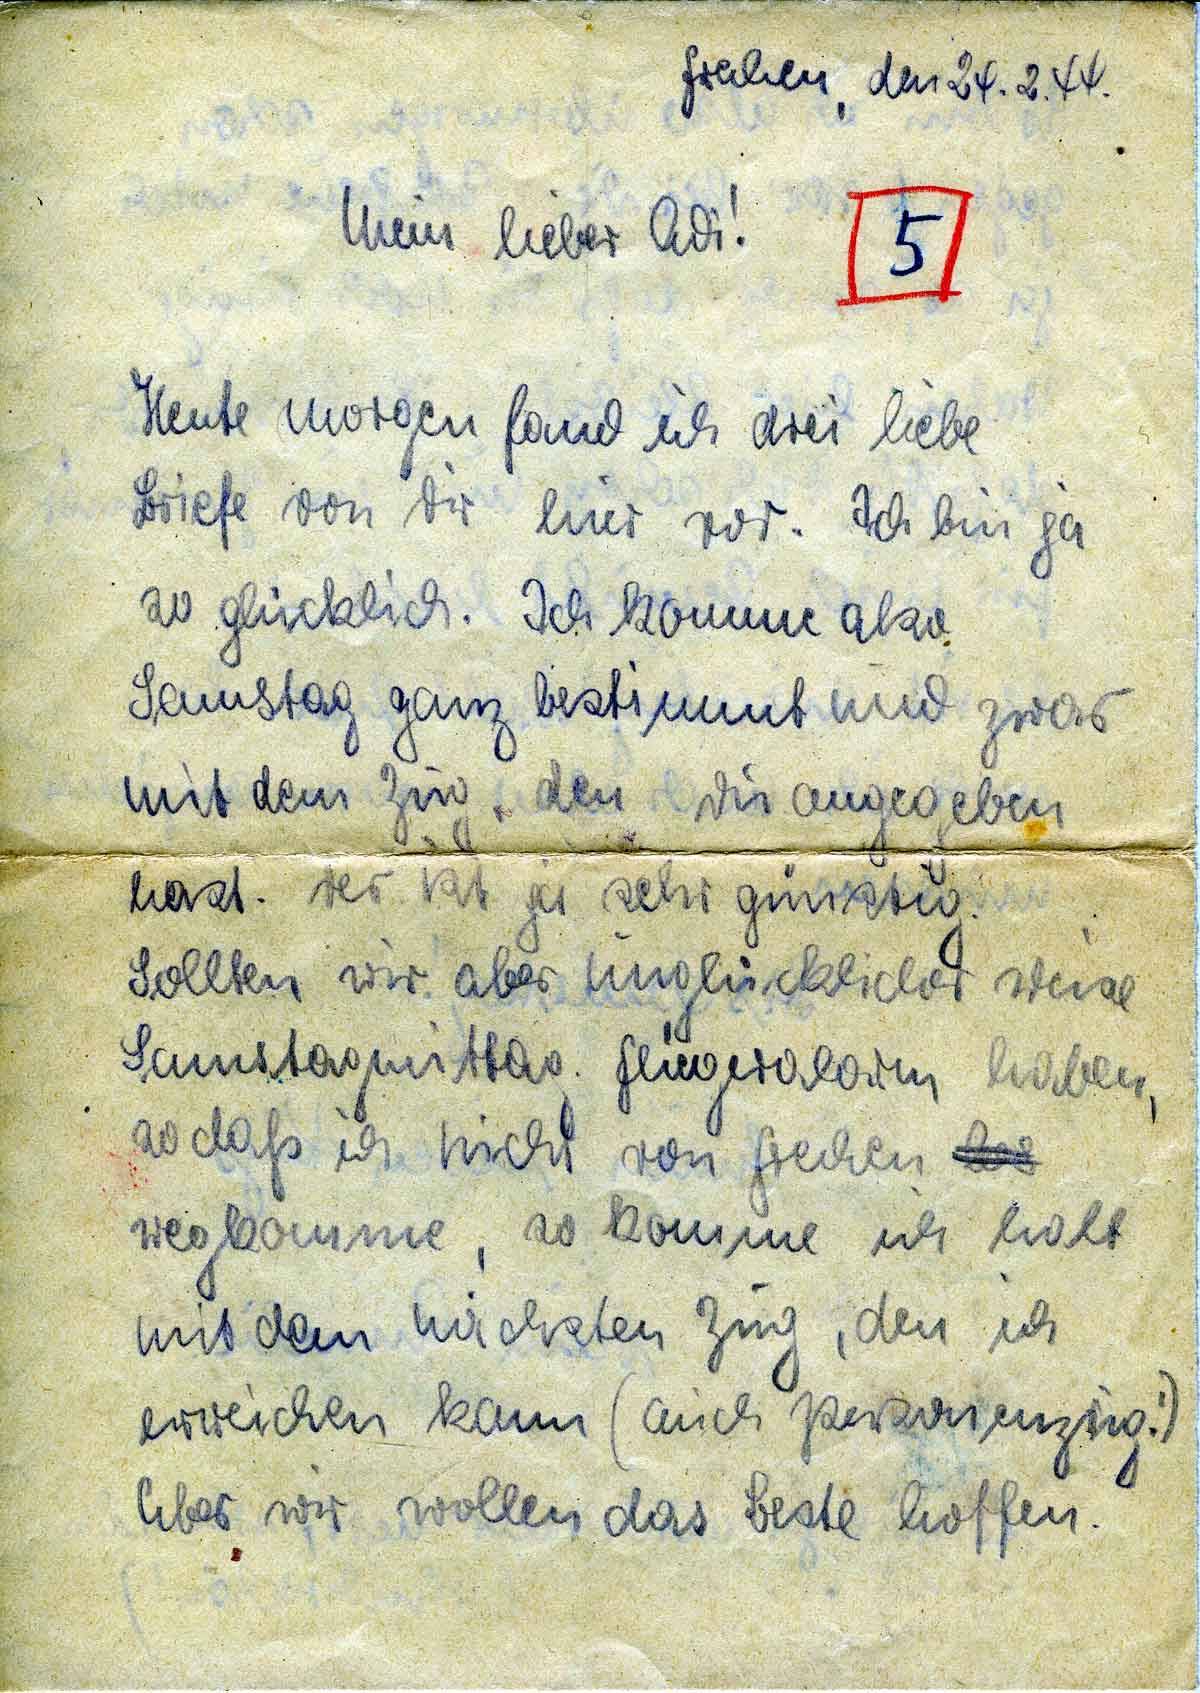 Frechen, den 24.2.44.
Mein lieber Adi!
5
Heute morgen fand ich drei liebe
Briefe von Dir hier vor. Ich bin ja
so glücklich. Ich komme also
Samstag ganz bestimmt und zwar
mit dem Zug, den Du angegeben
hast. Der ist ja sehr günstig.
Sollten wir aber unglücklicher Weise
Samstagmittag Fliegeralarm haben,
sodaß ich nicht von Frechen
wegkomme, so komme ich halt
mit dem nächsten Zug, den ich
erreichen kann (auch Personenzug!)
Aber wir wollen das Beste hoffen.